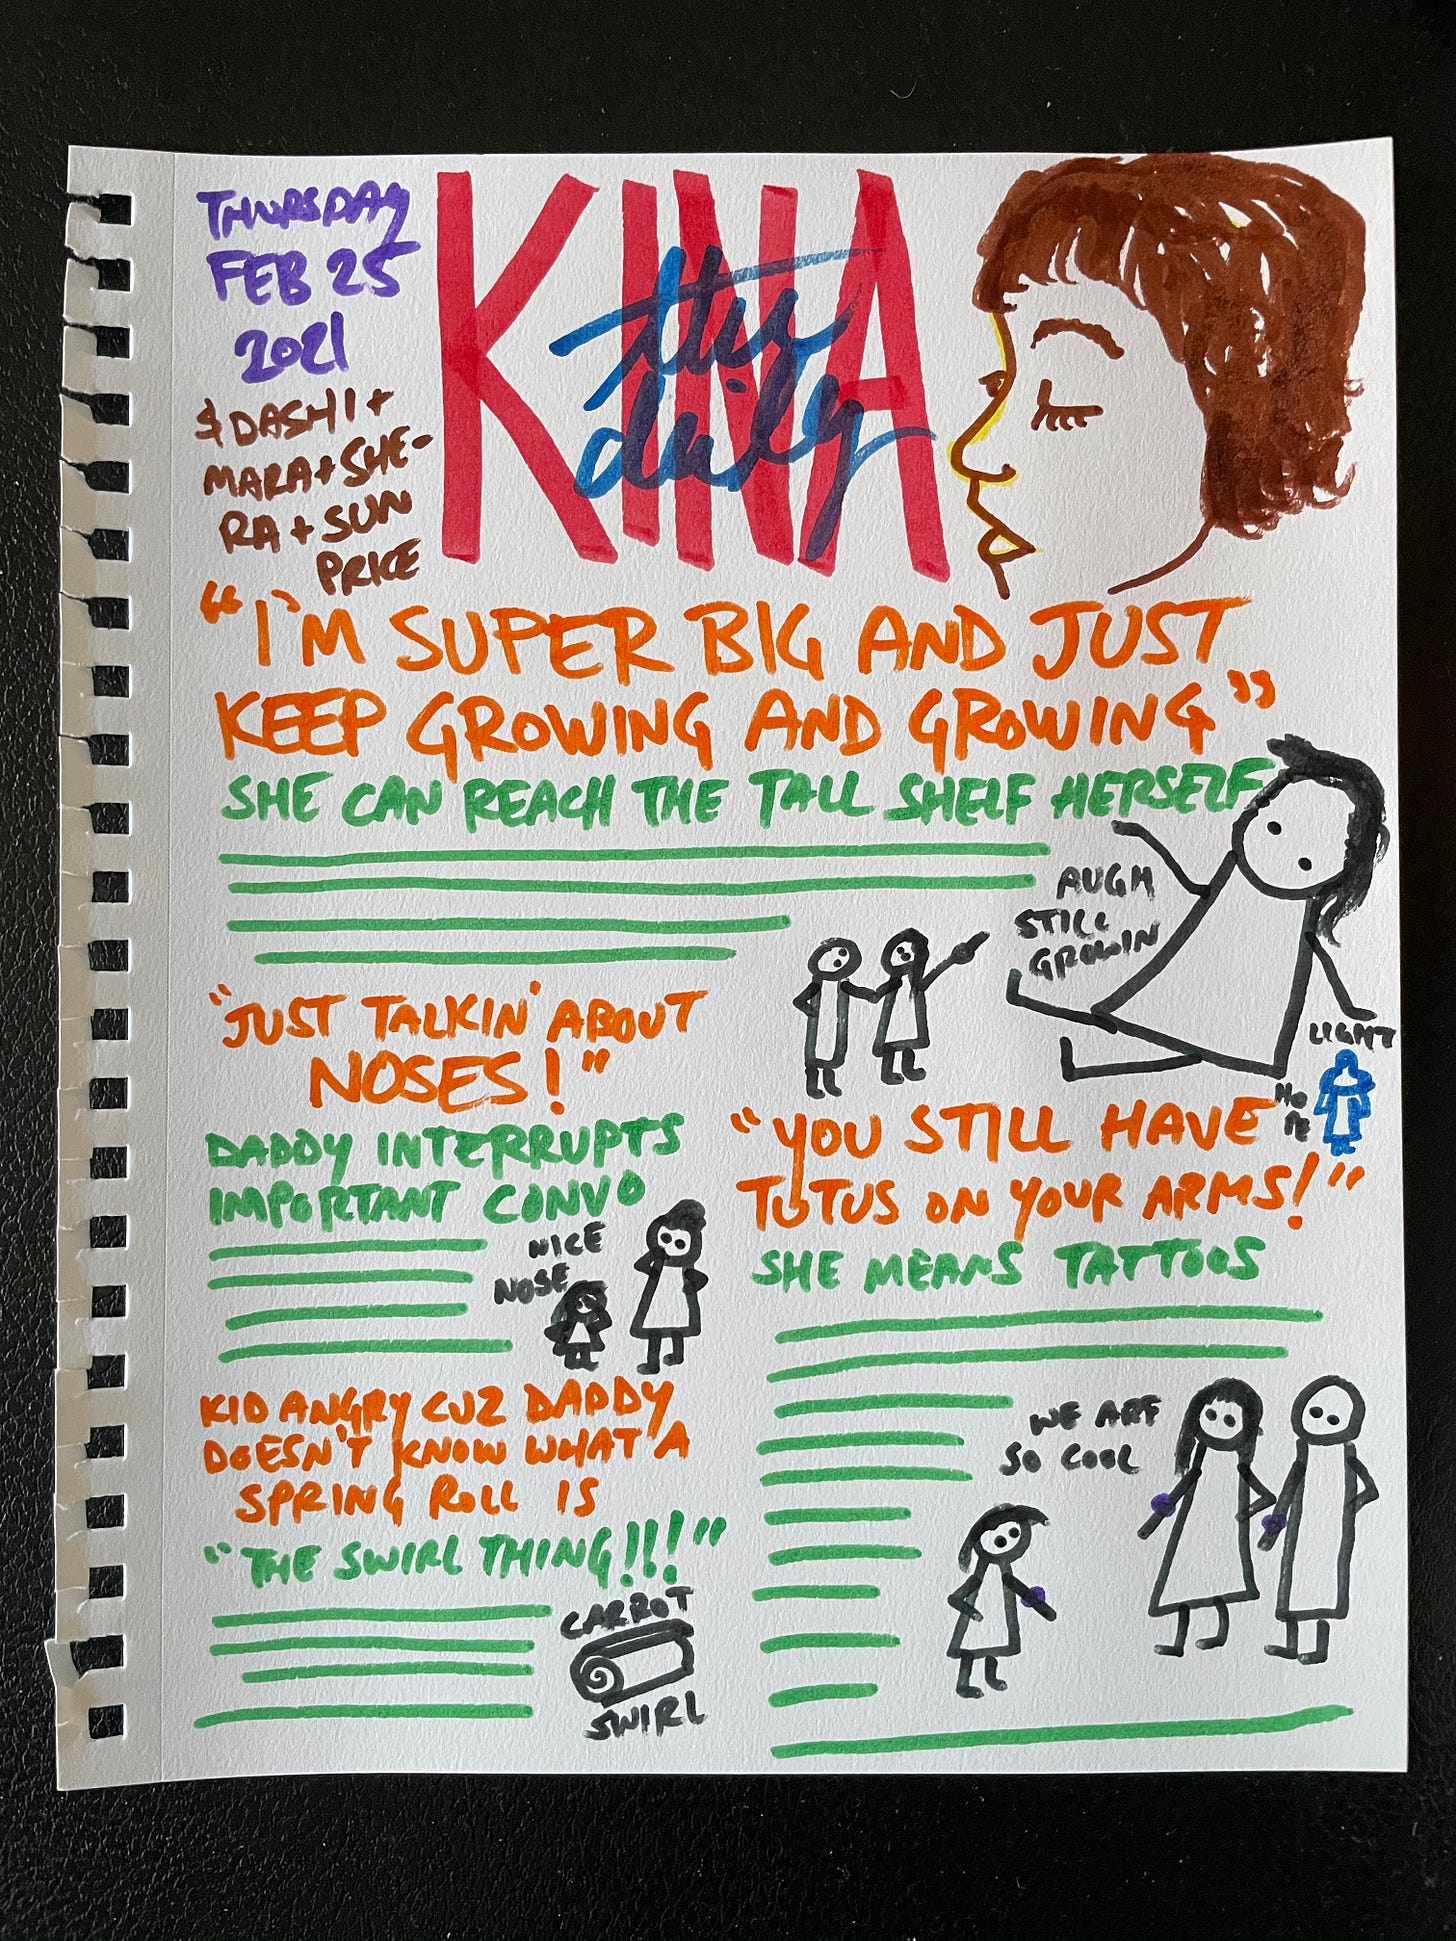 THURSDAY
FEB 25
2021
& DASHI +
MARA + SHE-
RA + SUN
PRICE
KINA
the
daily
"I'M SUPER BIG AND JUST
KEEP GROWING AND GROWING"
SHE CAN REACH THE TALL SHELF HERSELF
AUGH
STILL
GROWIN
LIGHT
HO
PE
"JUST TALKIN' ABOUT
NOSES!"
DADDY INTERRUPTS
IMPORTANT CONVO
NICE
NOSE
"YOU STILL HAVE
TUTUS ON YOUR ARMS!"
SHE MEANS TATTOOS
WE ARE
SO COOL
KID ANGRY CUZ DADDY
DOESN'T KNOW WHAT A
SPRING ROLL IS
"THE SWIRL THING!!!"
CARROT
SWIRL